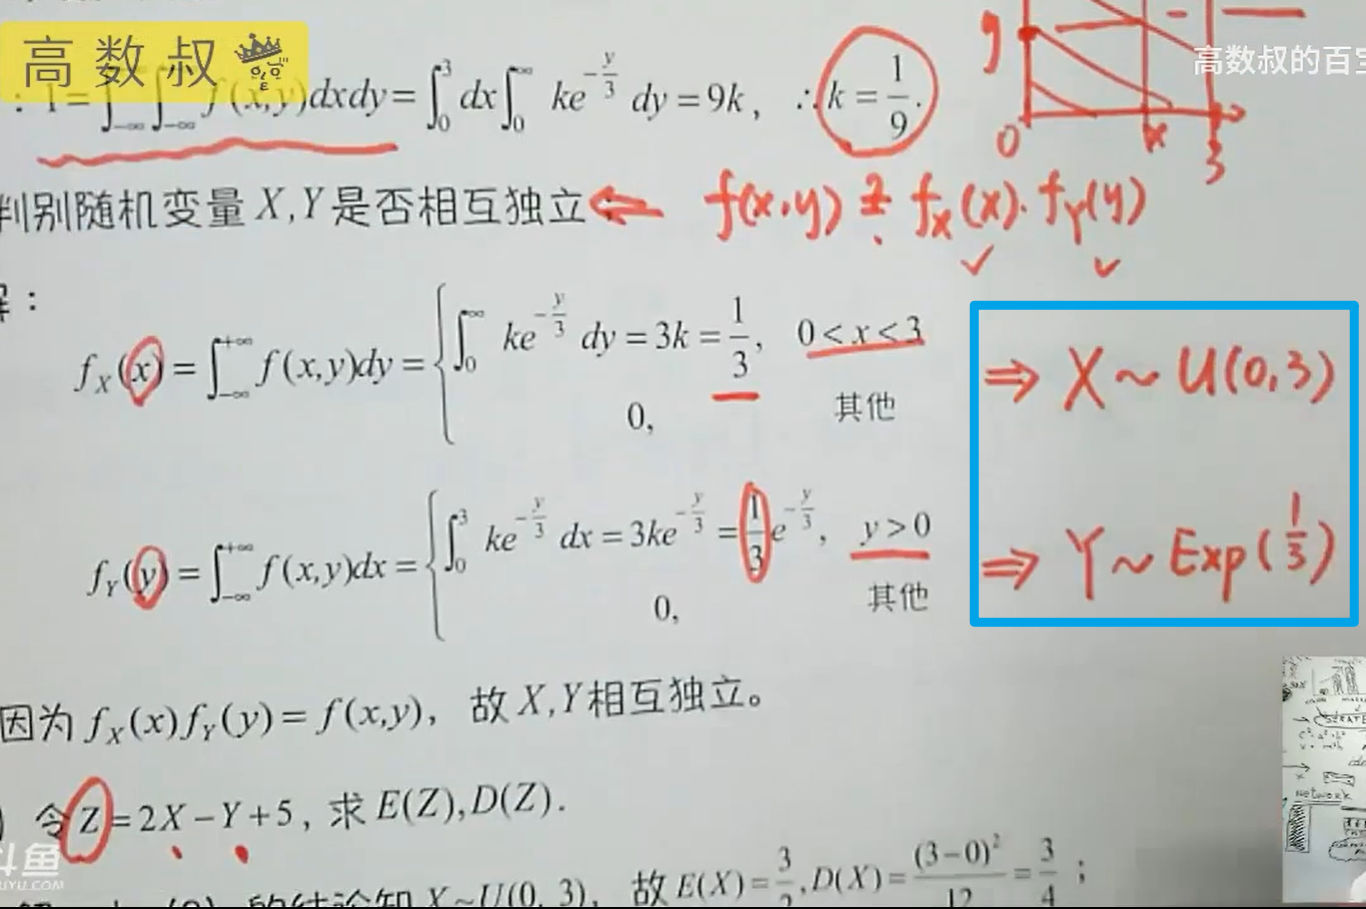 高数叔
高数叔的百宝
: 1=∫_{-∞}∫_{-∞} f(x,y)dxdy=∫_0^3 dx∫_0^∞ ke^{-y/3} dy=9k, ∴k=1/9.
y
0 x 3
判别随机变量 X,Y是否相互独立 ⇐ f(x,y) ≟ f_X(x)·f_Y(y)
解:
f_X(x)=∫_{-∞}^{+∞} f(x,y)dy={∫_0^∞ ke^{-y/3} dy=3k=1/3, 0<x<3
0, 其他
⇒ X~U(0,3)
f_Y(y)=∫_{-∞}^{+∞} f(x,y)dx={∫_0^3 ke^{-y/3} dx=3ke^{-y/3}=1/3 e^{-y/3}, y>0
0, 其他
⇒ Y~Exp(1/3)
因为 f_X(x)f_Y(y)=f(x,y), 故 X,Y相互独立。
) 令Z=2X-Y+5, 求E(Z),D(Z).
的结论知 X~U(0, 3), 故E(X)=3/2, D(X)=(3-0)^2/12=3/4;
斗鱼
network